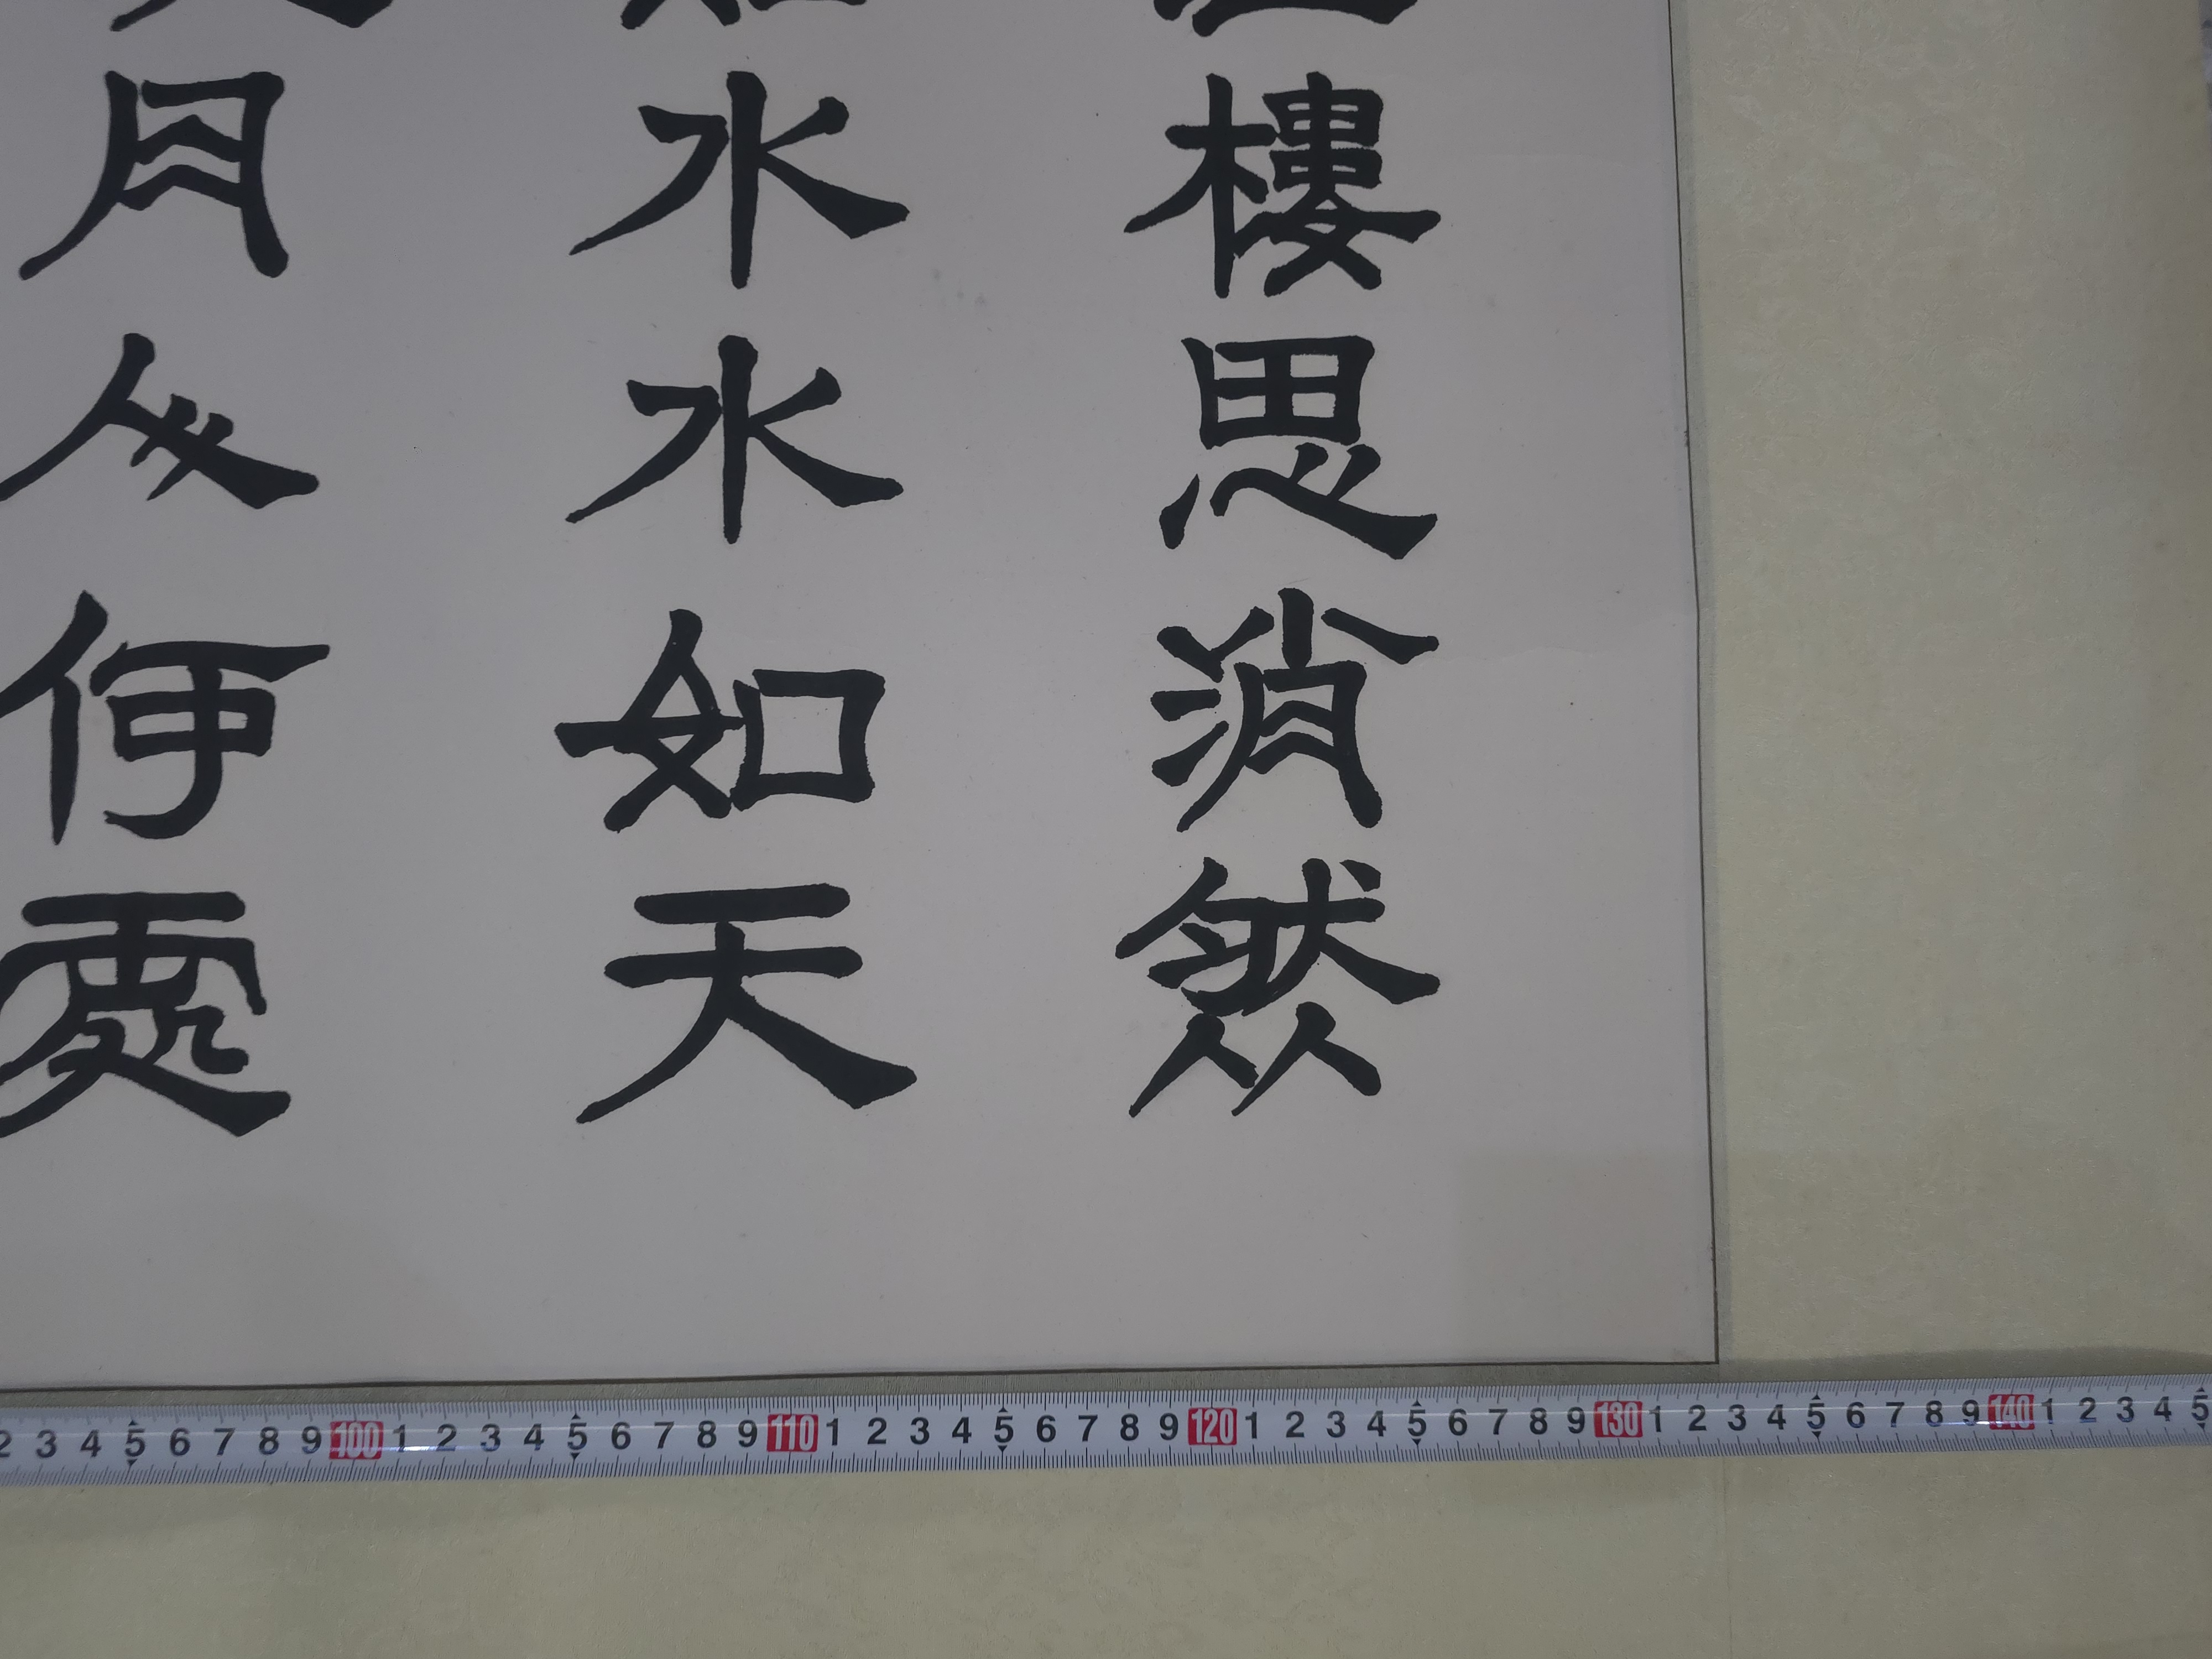 樓思消然
水水如天
月人何處
2 3 4 5 6 7 8 9 100 1 2 3 4 5 6 7 8 9 110 1 2 3 4 5 6 7 8 9 120 1 2 3 4 5 6 7 8 9 130 1 2 3 4 5 6 7 8 9 140 1 2 3 4 5